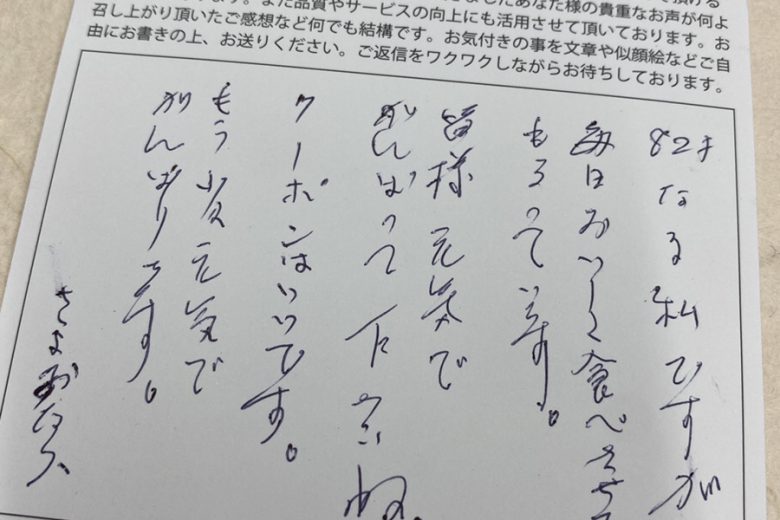 召し上がり頂いたご感想など何でも結構です。お気付きの事を文章や似顔絵などご自
由にお書きの上、お送りください。ご返信をワクワクしながらお待ちしております。
なる私ですが
毎日おいしく食べさせ
もらっています。
皆様 元気で
がんばって下さいね
クーポンはいいです。
もう少し元気で
がんばります。